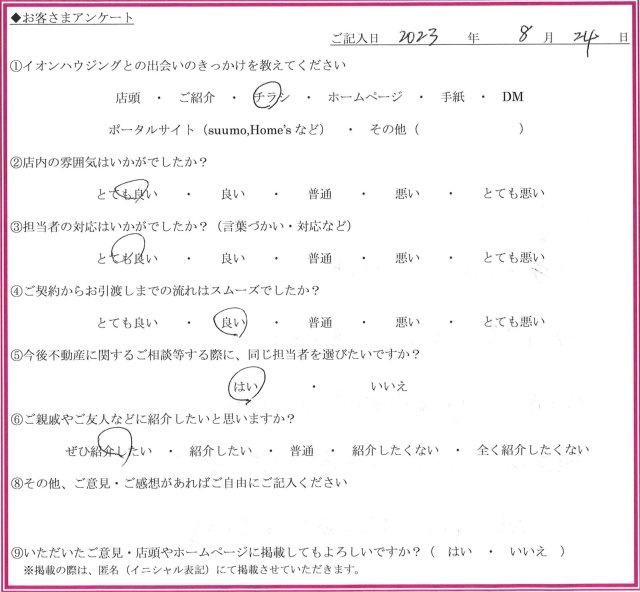 ◆お客さまアンケート
ご記入日 2023 年 8 月 24 日
①イオンハウジングとの出会いのきっかけを教えてください
店頭 ・ ご紹介 ・ チラシ ・ ホームページ ・ 手紙 ・ DM
ポータルサイト（suumo,Home's など） ・ その他（ ）
②店内の雰囲気はいかがでしたか？
とても良い ・ 良い ・ 普通 ・ 悪い ・ とても悪い
③担当者の対応はいかがでしたか？（言葉づかい・対応など）
とても良い ・ 良い ・ 普通 ・ 悪い ・ とても悪い
④ご契約からお引渡しまでの流れはスムーズでしたか？
とても良い ・ 良い ・ 普通 ・ 悪い ・ とても悪い
⑤今後不動産に関するご相談等する際に、同じ担当者を選びたいですか？
はい ・ いいえ
⑥ご親戚やご友人などに紹介したいと思いますか？
ぜひ紹介したい ・ 紹介したい ・ 普通 ・ 紹介したくない ・ 全く紹介したくない
⑧その他、ご意見・ご感想があればご自由にご記入ください
⑨いただいたご意見・店頭やホームページに掲載してもよろしいですか？（ はい ・ いいえ ）
※掲載の際は、匿名（イニシャル表記）にて掲載させていただきます。